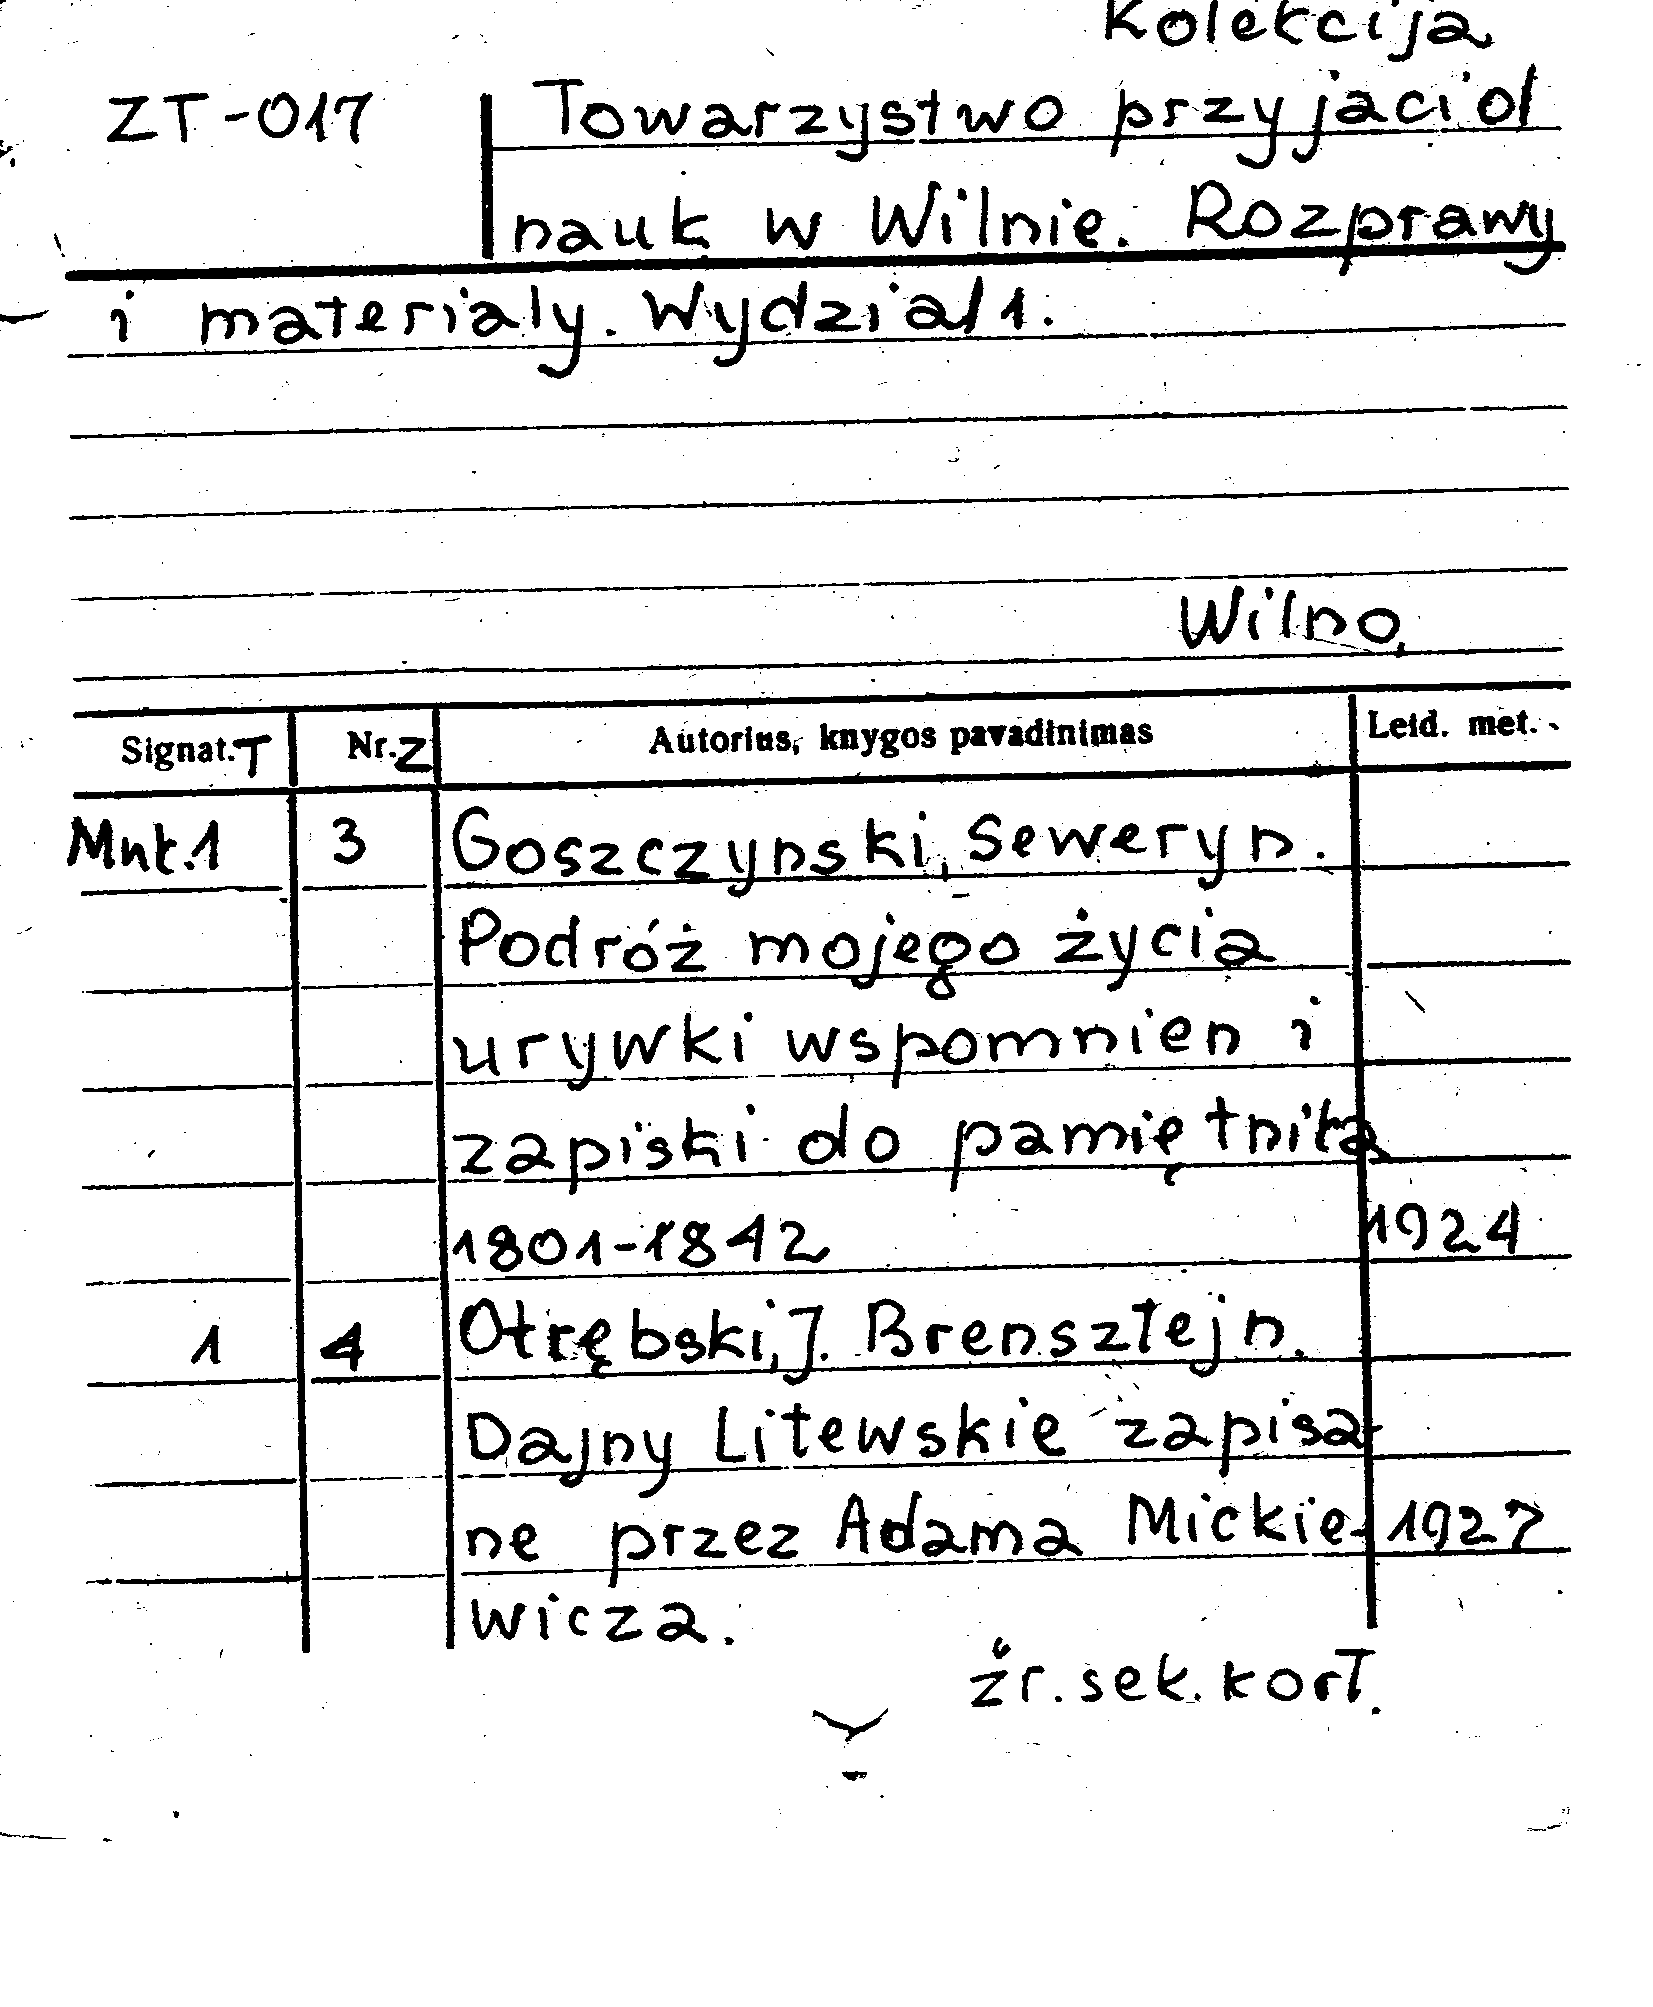 Kolekcija
ZT-017 Towarzystwo przyjaciol
nauk w Wilnie. Rozprawy
i materialy. Wydzial 1.
Wilno,
Signat. T Nr. Z Autorius, knygos pavadinimas Leid. met.
Mnk.1 3 Goszczynski, Seweryn.
Podróż mojego życia
urywki wspomnien i
zapiski do pamiętnika
1801-1842 1924
1 4 Otrębski, J. Brensztejn.
Dajny Litewskie zapisa-
ne przez Adama Mickie- 1927
wicza.
žr. sek. kort.